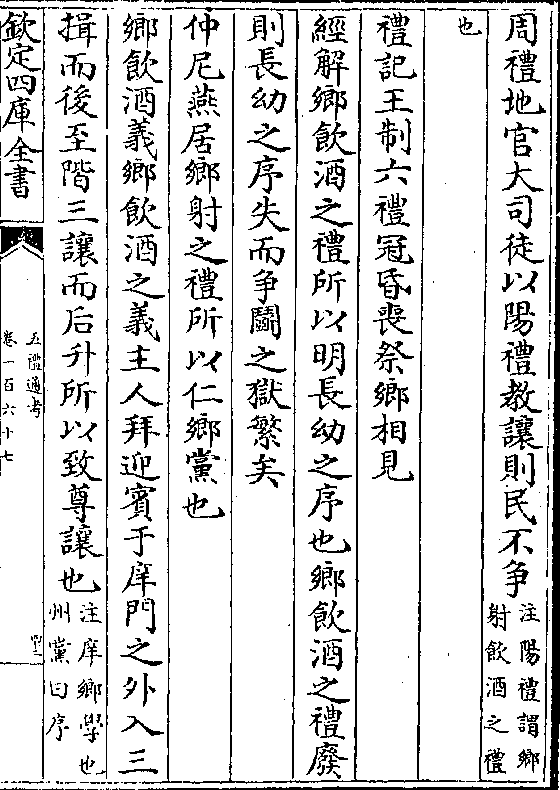 周禮地官大司徒以陽禮教讓則民不争注陽禮謂鄉射飲酒之禮
也
禮記王制六禮冠昏喪祭鄉相見
經解鄉飲酒之禮所以明長幼之序也鄉飲酒之禮廢
則長幼之序失而争鬭之獄繁矣
仲尼燕居鄉射之禮所以仁鄉黨也
鄉飲酒義鄉飲酒之義主人拜迎賓于庠門之外入三
揖而後至階三讓而后升所以致尊讓也注庠鄉學也州黨曰序
欽定四庫全書
五禮通考
卷一百六十七